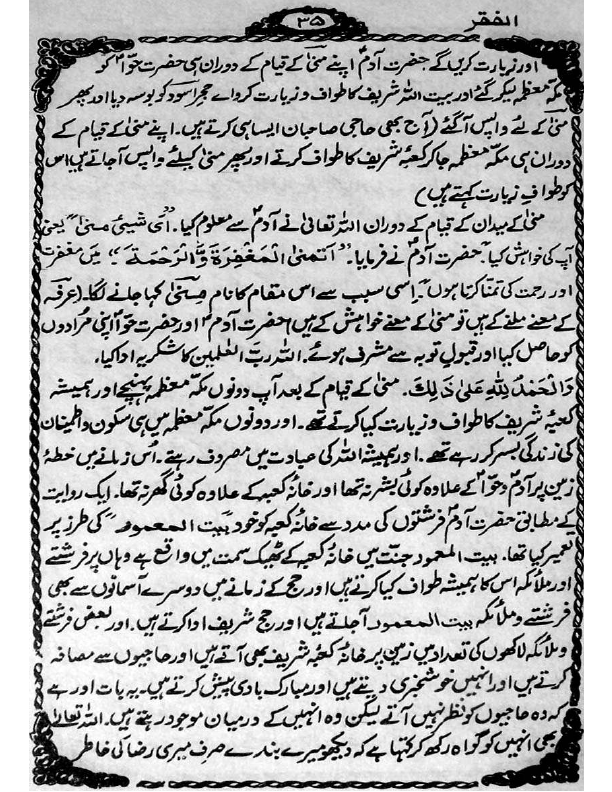 الفقر
۳۵
اور زیارت کریں گے حضرت آدمؑ اپنے منیٰ کے قیام کے دوران ہی حضرت حوّاؑ کو
مکہ معظمہ لیکر گئے اور بیت اللہ شریف کا طواف و زیارت کروائے حجر اسود کو بوسہ دیا اور پھر
منیٰ کے لئے واپس آگئے (آج بھی حاجی صاحبان ایسا ہی کرتے ہیں۔ اپنے منیٰ کے قیام کے
دوران ہی مکہ معظمہ جا کر کعبۂ شریف کا طواف کرتے اور پھر منیٰ کیلئے واپس آجاتے ہیں اس
کو طوافِ زیارت کہتے ہیں)
منیٰ کے میدان کے قیام کے دوران اللہ تعالیٰ نے آدمؑ سے معلوم کیا۔ "ای شییٔ منیٰ" یعنی
آپ کی خواہش کیا۔ حضرت آدمؑ نے فرمایا۔ "اتمنیٰ المَغفِرَةَ وَالرَّحمَةَ"۔ میں مغفرت
اور رحمت کی تمنّا کرتا ہوں۔ اِسی سبب سے اس مقام کا نام مِنیٰ کہا جانے لگا۔ (عرفہ
کے معنے ملنے کے ہیں تو منیٰ کے معنے خواہش کے ہیں) حضرت آدمؑ اور حضرت حوّاؑ اپنی مُرادوں
کو حاصل کیا اور قبولِ توبہ سے مشرف ہوئے۔ اللہ ربّ العٰلمین کا شکریہ ادا کیا۔
وَالْحَمْدُ لِلّٰهِ عَلىٰ ذَالِكَ۔ منیٰ کے قیام کے بعد آپ دونوں مکہ معظمہ پہنچے اور ہمیشہ
کعبۂ شریف کا طواف و زیارت کیا کرتے تھے۔ اور دونوں مکہ معظمہ میں ہی سکون و اطمینان
کی زندگی بسر کر رہے تھے۔ اور ہمیشہ اللہ کی عبادت میں مصروف رہتے۔ اُس زمانے میں خطۂ
زمین پر آدمؑ و حوّاؑ کے علاوہ کوئی بشر نہ تھا اور خانۂ کعبہ کے علاوہ کوئی گھر نہ تھا۔ ایک روایت
کے مطابق حضرت آدمؑ فرشتوں کی مدد سے خانۂ کعبہ کو خود "بیت المعمور" کی طرز پر
تعمیر کیا تھا۔ بیت المعمور جنّت میں خانۂ کعبہ کے ٹھیک سمت میں واقع ہے وہاں پر فرشتے
اور ملائکہ اس کا ہمیشہ طواف کیا کرتے ہیں اور حج کے زمانے میں دوسرے آسمانوں سے بھی
فرشتے و ملائکہ بیت المعمور آجاتے ہیں اور حج شریف ادا کرتے ہیں۔ اور بعض فرشتے
و ملائکہ لاکھوں کی تعداد میں زمین پر خانۂ کعبۂ شریف بھی آتے ہیں اور حاجیوں سے مصافہ
کرتے ہیں اور انہیں خوشخبری دیتے ہیں اور مبارک بادی پیش کرتے ہیں۔ یہ بات اور ہے
کہ وہ حاجیوں کو نظر نہیں آتے لیکن وہ انہیں کے درمیان موجود رہتے ہیں۔ اللہ تعالیٰ
بھی انہیں کو گواہ رکھ کر کہتا ہے کہ دیکھو میرے بندے صرف میری رضا کی خاطر